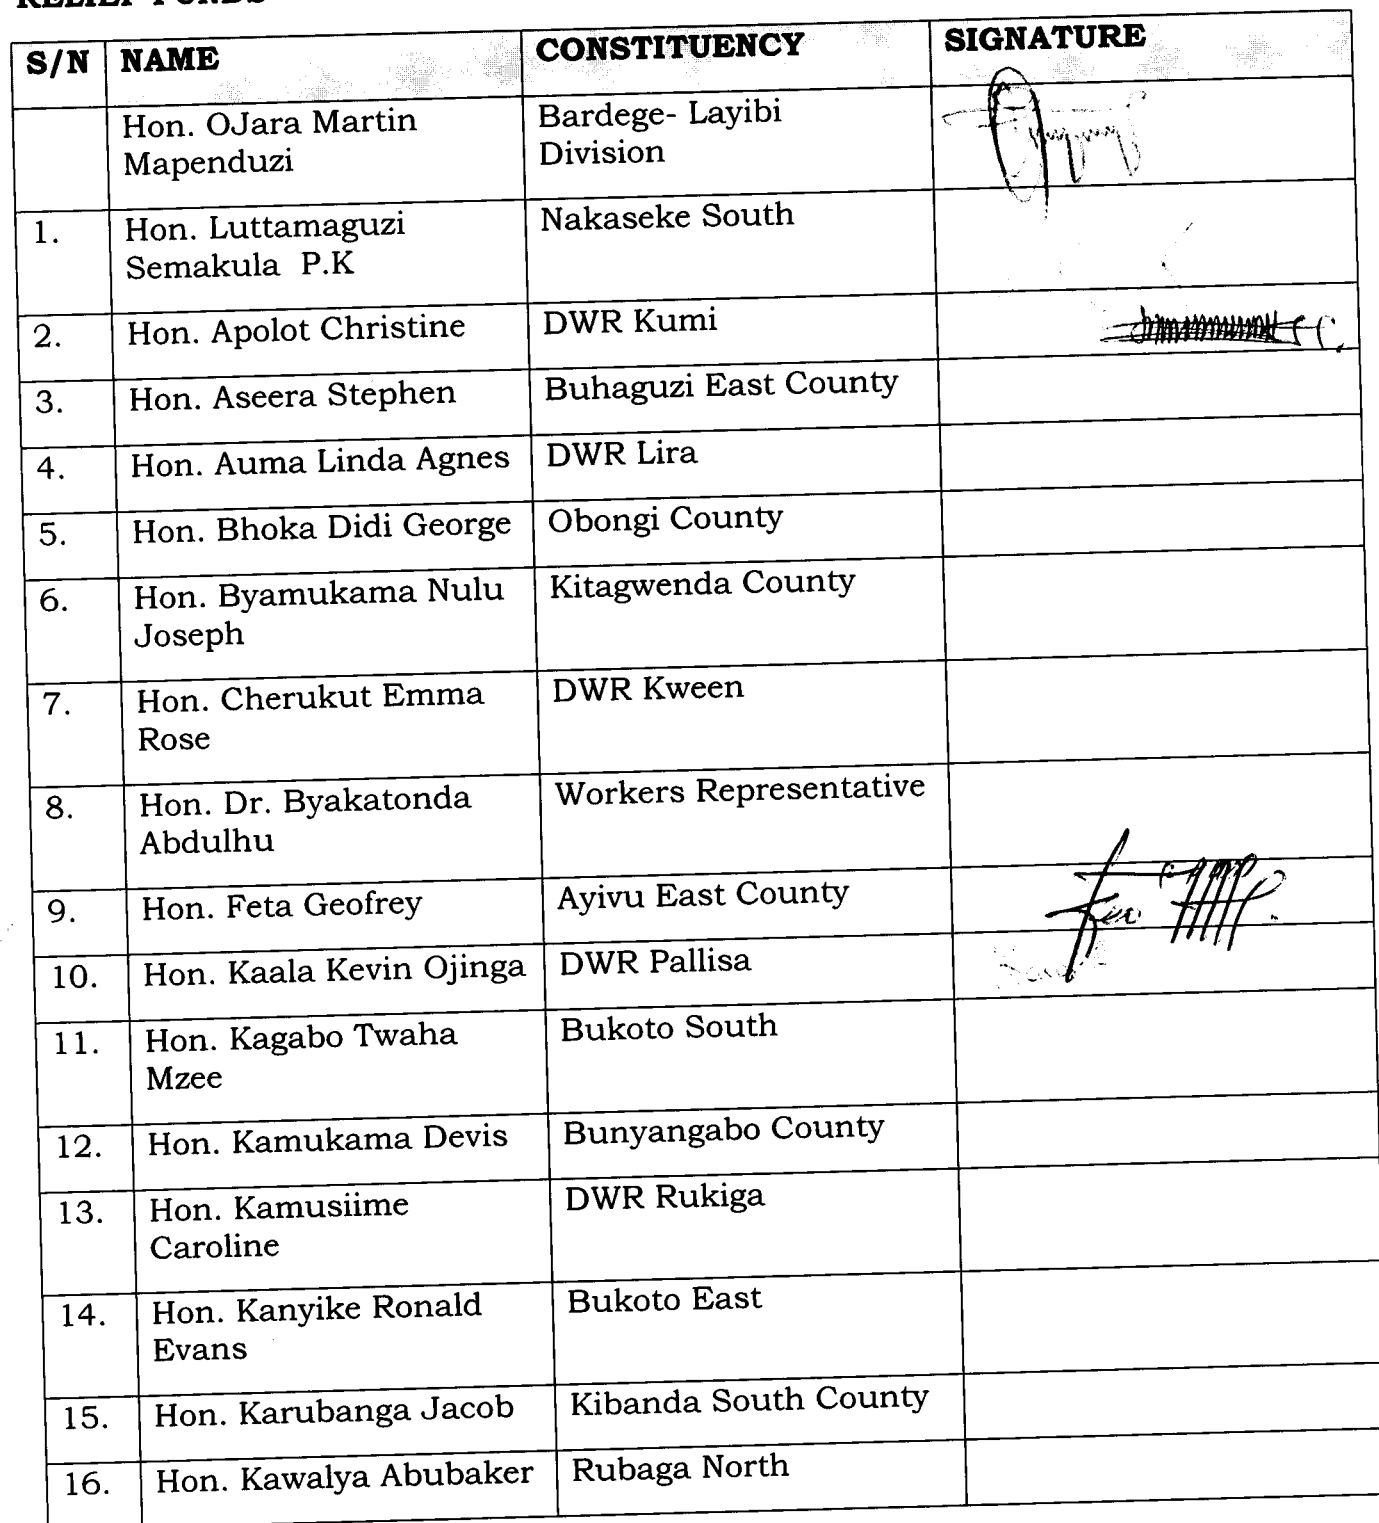 RELIEF FUNDS
S/N NAME CONSTITUENCY SIGNATURE
Hon. OJara Martin Bardege- Layibi
Mapenduzi Division
1. Hon. Luttamaguzi Nakaseke South
Semakula P.K
2. Hon. Apolot Christine DWR Kumi
3. Hon. Aseera Stephen Buhaguzi East County
4. Hon. Auma Linda Agnes DWR Lira
5. Hon. Bhoka Didi George Obongi County
6. Hon. Byamukama Nulu Kitagwenda County
Joseph
7. Hon. Cherukut Emma DWR Kween
Rose
8. Hon. Dr. Byakatonda Workers Representative
Abdulhu
9. Hon. Feta Geofrey Ayivu East County
10. Hon. Kaala Kevin Ojinga DWR Pallisa
11. Hon. Kagabo Twaha Bukoto South
Mzee
12. Hon. Kamukama Devis Bunyangabo County
13. Hon. Kamusiime DWR Rukiga
Caroline
14. Hon. Kanyike Ronald Bukoto East
Evans
15. Hon. Karubanga Jacob Kibanda South County
16. Hon. Kawalya Abubaker Rubaga North